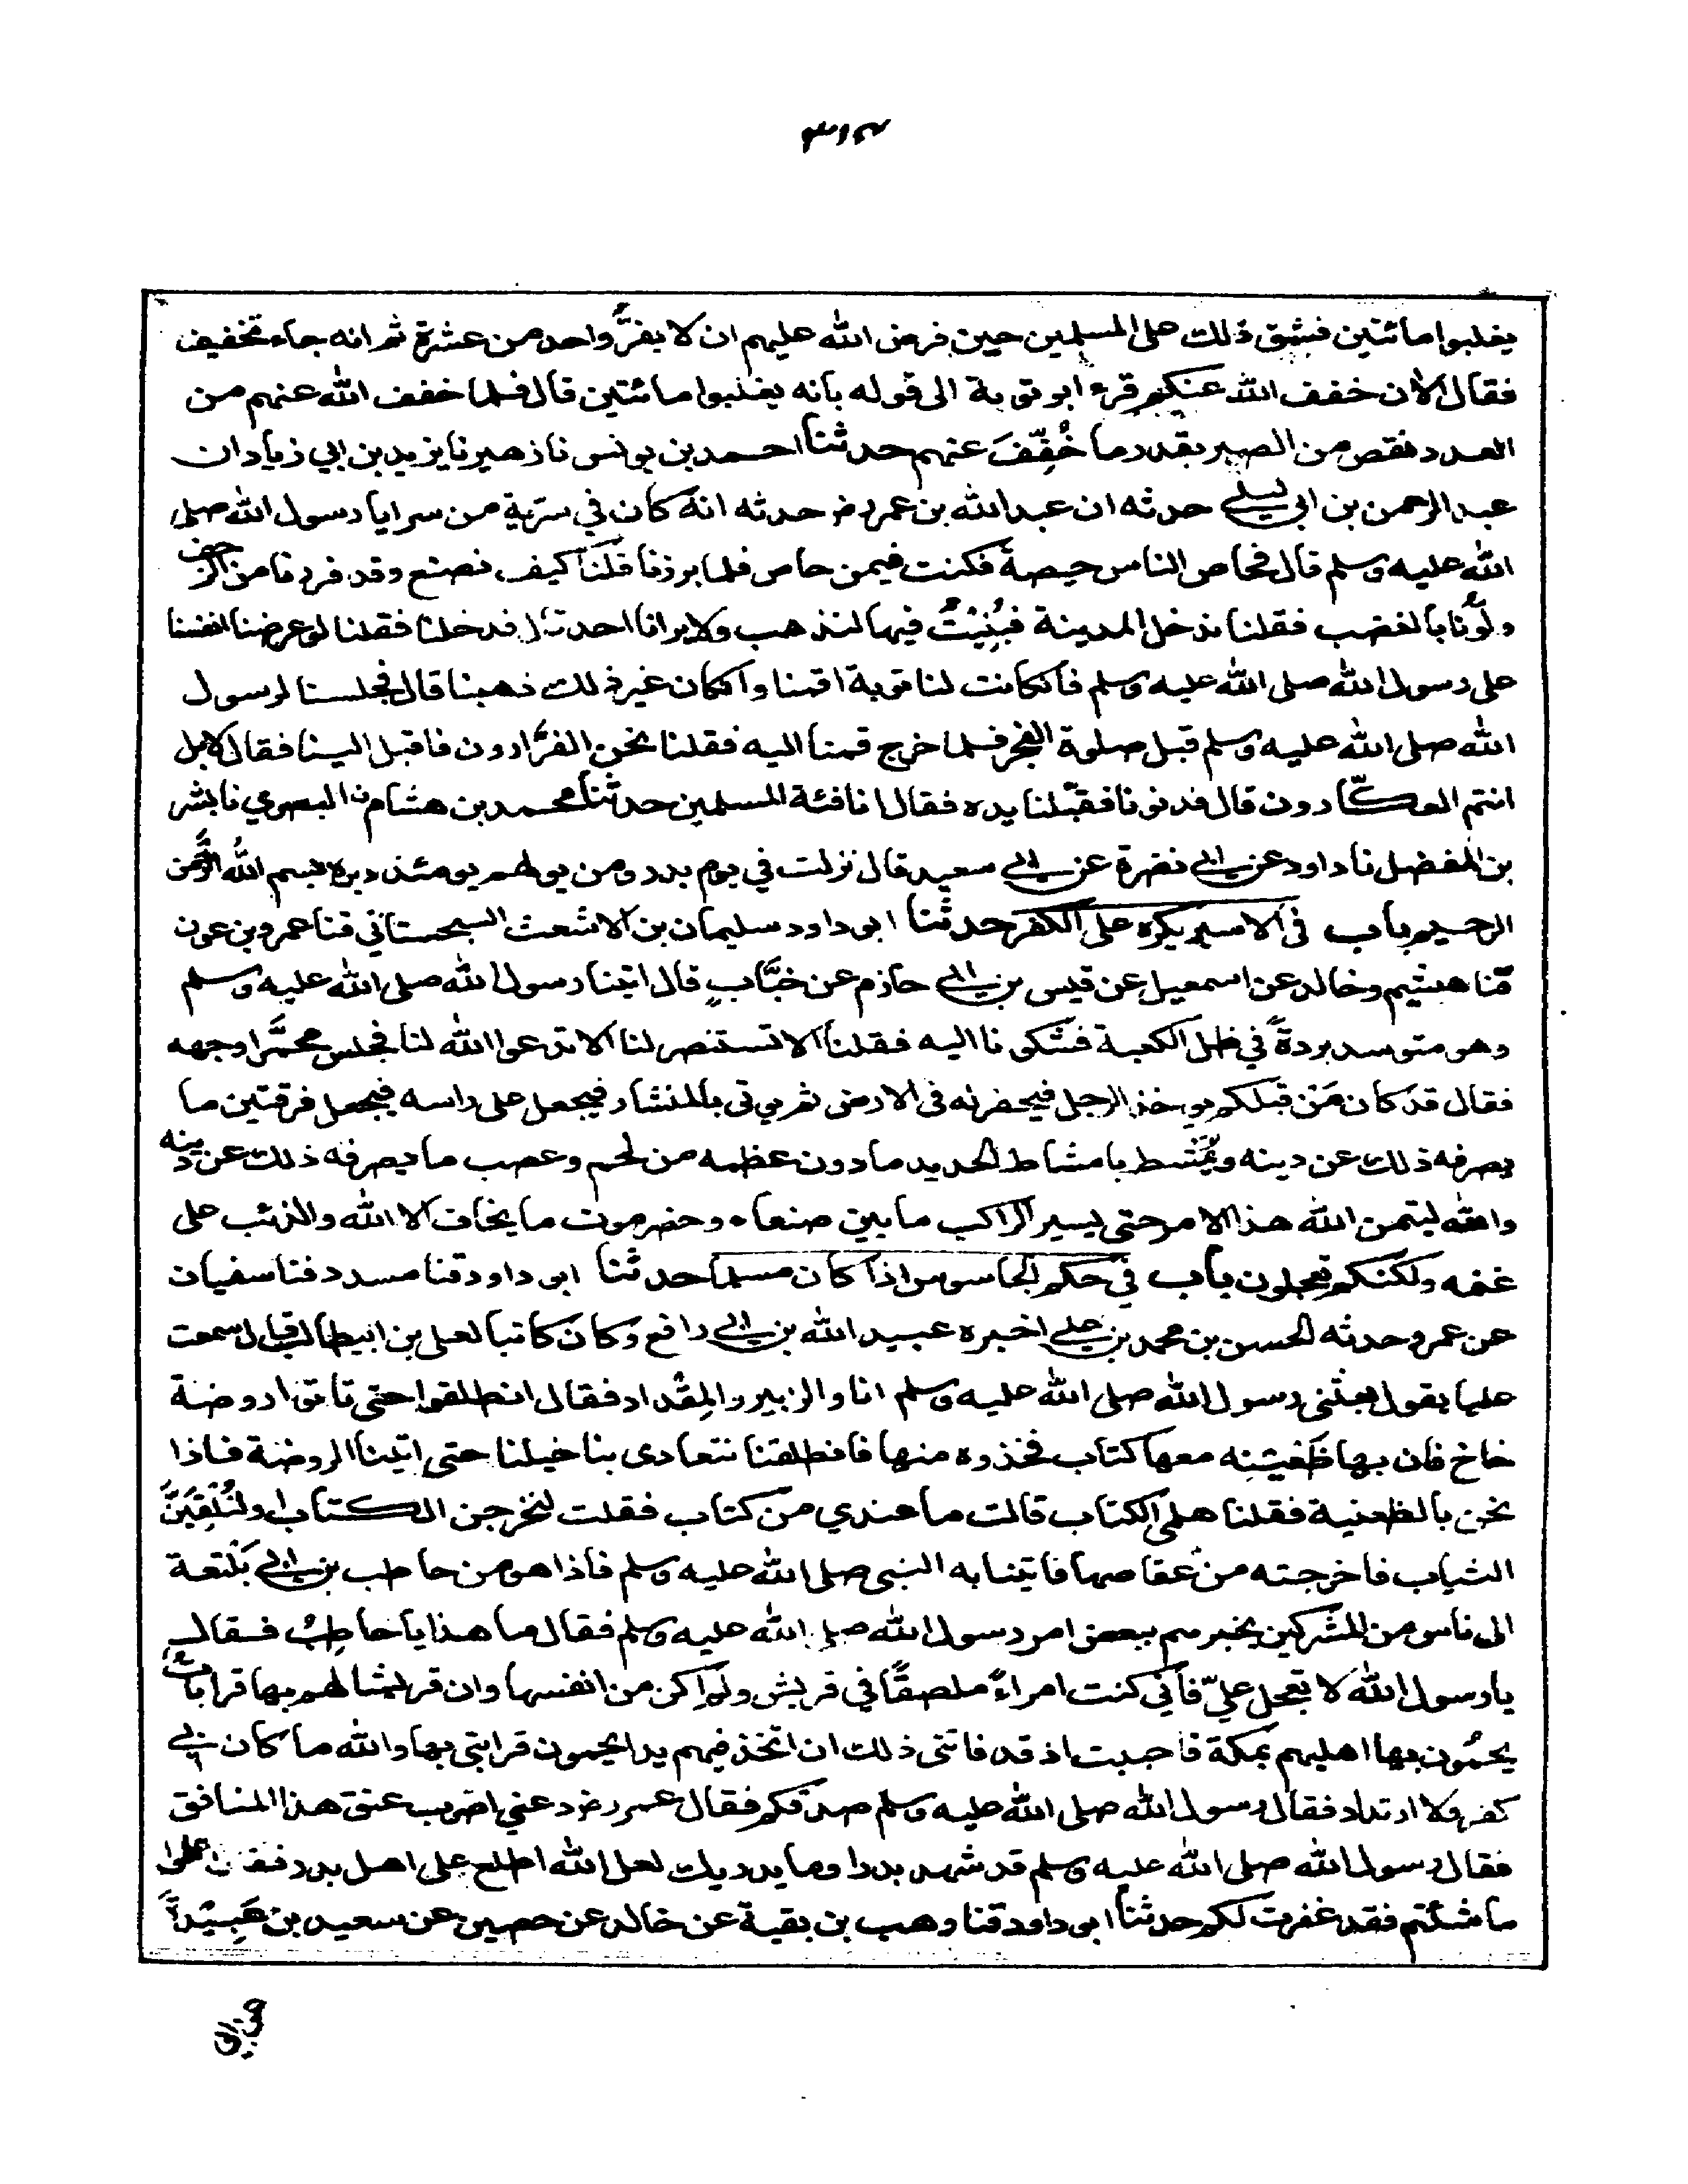 يغلبوا مائتين فشق ذلك على المسلمين حين فرض الله عليهم ان لا يفرَّ واحد من عشرة ثم انه جاء تخفيف
فقال الان خفف الله عنكم قرء ابو توبة الى قوله بانه يغلبوا مائتين قال فلما خفف الله عنهم من
العدد نقص من الصبر بقدر ما خُفِّفَ عنهم حدثنا احمد بن يونس نا زهير نا يزيد بن ابي زياد ان
عبد الرحمن بن ابي ليلى حدثه ان عبد الله بن عمر رض حدثه انه كان في سرية من سرايا رسول الله صلى
الله عليه وسلم قال فحاص الناس حيصة فكنت فيمن حاص فلما برزنا قلنا كيف نصنع وقد فررنا من الزحف
وبؤنا بالغضب فقلنا ندخل المدينة فنبيت فيها لنذهب ولا يرانا احد قال فدخلنا فقلنا لو عرضنا انفسنا
على رسول الله صلى الله عليه وسلم فان كانت لنا توبة اقمنا وان كان غير ذلك ذهبنا قال فجلسنا لرسول
الله صلى الله عليه وسلم قبل صلوة الفجر فلما خرج قمنا اليه فقلنا نحن الفرَّارون فاقبل الينا فقال لا بل
انتم العكّارون قال فدنونا فقبّلنا يده فقال انا فئة المسلمين حدثنا محمد بن هشام البصري نا بشر
بن المفضل نا داود عن ابي نضرة عن ابي سعيد قال نزلت في يوم بدر ومن يولهم يومئذ دبره بسم الله الرحمن
الرحيم باب في الاسير يكره على الكفر حدثنا ابو داود سليمان بن الاشعث السجستاني قثنا عمرو بن عون
قثنا هشيم وخالد عن اسمعيل عن قيس بن ابي حازم عن خبَّابٍ قال اتينا رسول الله صلى الله عليه وسلم
وهو متوسد بردةً في ظل الكعبة فشكونا اليه فقلنا الا تستنصر لنا الا تدعوا الله لنا فجلس محمرَّا وجهه
فقال قد كان مَن قبلكم يوخذ الرجل فيحفر له فى الارض ثم يوتى بالمنشار فيجعل على راسه فيجعل فرقتين ما
يصرفه ذلك عن دينه ويُمَشط بامشاط الحديد ما دون عظمه من لحم وعصب ما يصرفه ذلك عن دينه
والله ليتمن الله هذا الامر حتى يسير الراكب ما بين صنعاء وحضرموت ما يخاف الا الله والذئب على
غنمه ولكنكم تعجلون باب في حكم الجاسوس اذا كان مسلما حدثنا ابو داود قثنا مسدد قثنا سفيان
عن عمرو حدثه الحسن بن محمد بن علي اخبره عبيد الله بن ابي رافع وكان كاتبا لعلى بن ابيطالب قال سمعت
عليا يقول بعثنى رسول الله صلى الله عليه وسلم انا والزبير والمِقداد فقال انطلقوا حتى تاتوا روضة
خاخ فان بها ظَعينة معها كتاب فخذوه منها فانطلقنا نتعادى بنا خيلنا حتى اتينا الروضة فاذا
نحن بالظعنية فقلنا هلمى الكتاب قالت ما عندي من كتاب فقلت لتخرجن الكتاب او لنُلْقِيَنَّ
الثياب فاخرجته من عقاصها فاتينا به النبي صلى الله عليه وسلم فاذا هو من حاطب بن ابي بَلْتعة
الى ناس من المشركين يخبرهم ببعض امر رسول الله صلى الله عليه وسلم فقال ما هذا يا حاطِبُ فقال
يا رسول الله لا تعجل عليّ فاني كنت امراءً ملصقًا في قريش ولم اكن من انفسها وان قريشا لهم بها قرابات
يحمُون بها اهليهم بمكة فاحببت اذ قد فاتنى ذلك ان اتخذ فيهم يدا يحمون قرابتى بها والله ما كان بي
كفر ولا ارتداد فقال رسول الله صلى الله عليه وسلم صدقكم فقال عمر رض دعني اضرب عنق هذا المنافق
فقال رسول الله صلى الله عليه وسلم قد شهد بدرا وما يدريك لعل الله اطلع على اهل بدر فقال اعملوا
ما شئتم فقد غفرت لكم حدثنا ابو داود قثنا وهب بن بقية عن خالد عن حصين عن سعيد بن عُبيدة